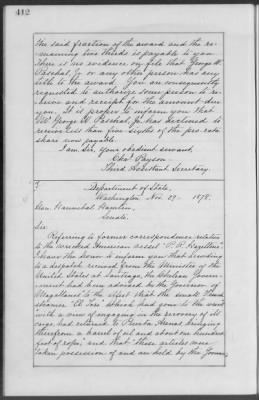 412
the said fraction of the award and the re-
maining two thirds is payable to you.
There is no evidence on file that George W.
Paschal, Jr. or any other person has any
title to the award. You are consequently
requested to authorize some person to re-
ceive and receipt for the amount due
you. It is proper to inform you that
Mr George W. Paschal, Jr. has declined to
receive less than five sixths of the pro rata
share now payable.
I am, Sir, Your obedient servant,
Chs Payson.
Third Assistant Secretary.
Department of State,
Washington, Nov. 29 1878.
Hon. Hannibal Hamlin,
Senate.
Sir:
Referring to former correspondence relative
to the wrecked American vessel "P. R. Hazeltine"
I have the honor to inform you that according
to a despatch received from the Minister of the
United States at Santiago, the Chilean Govern-
ment had been advised by the Governor of
Magallanes to the effect that the small
steamer "El Toro" which had gone to the wreck
with a view of engaging in the recovery of its
cargo, had returned to Punta Arenas bringing
therefrom a barrel of oil and about one hundred
feet of rope; and that these articles were
taken possession of and are held by the Govern